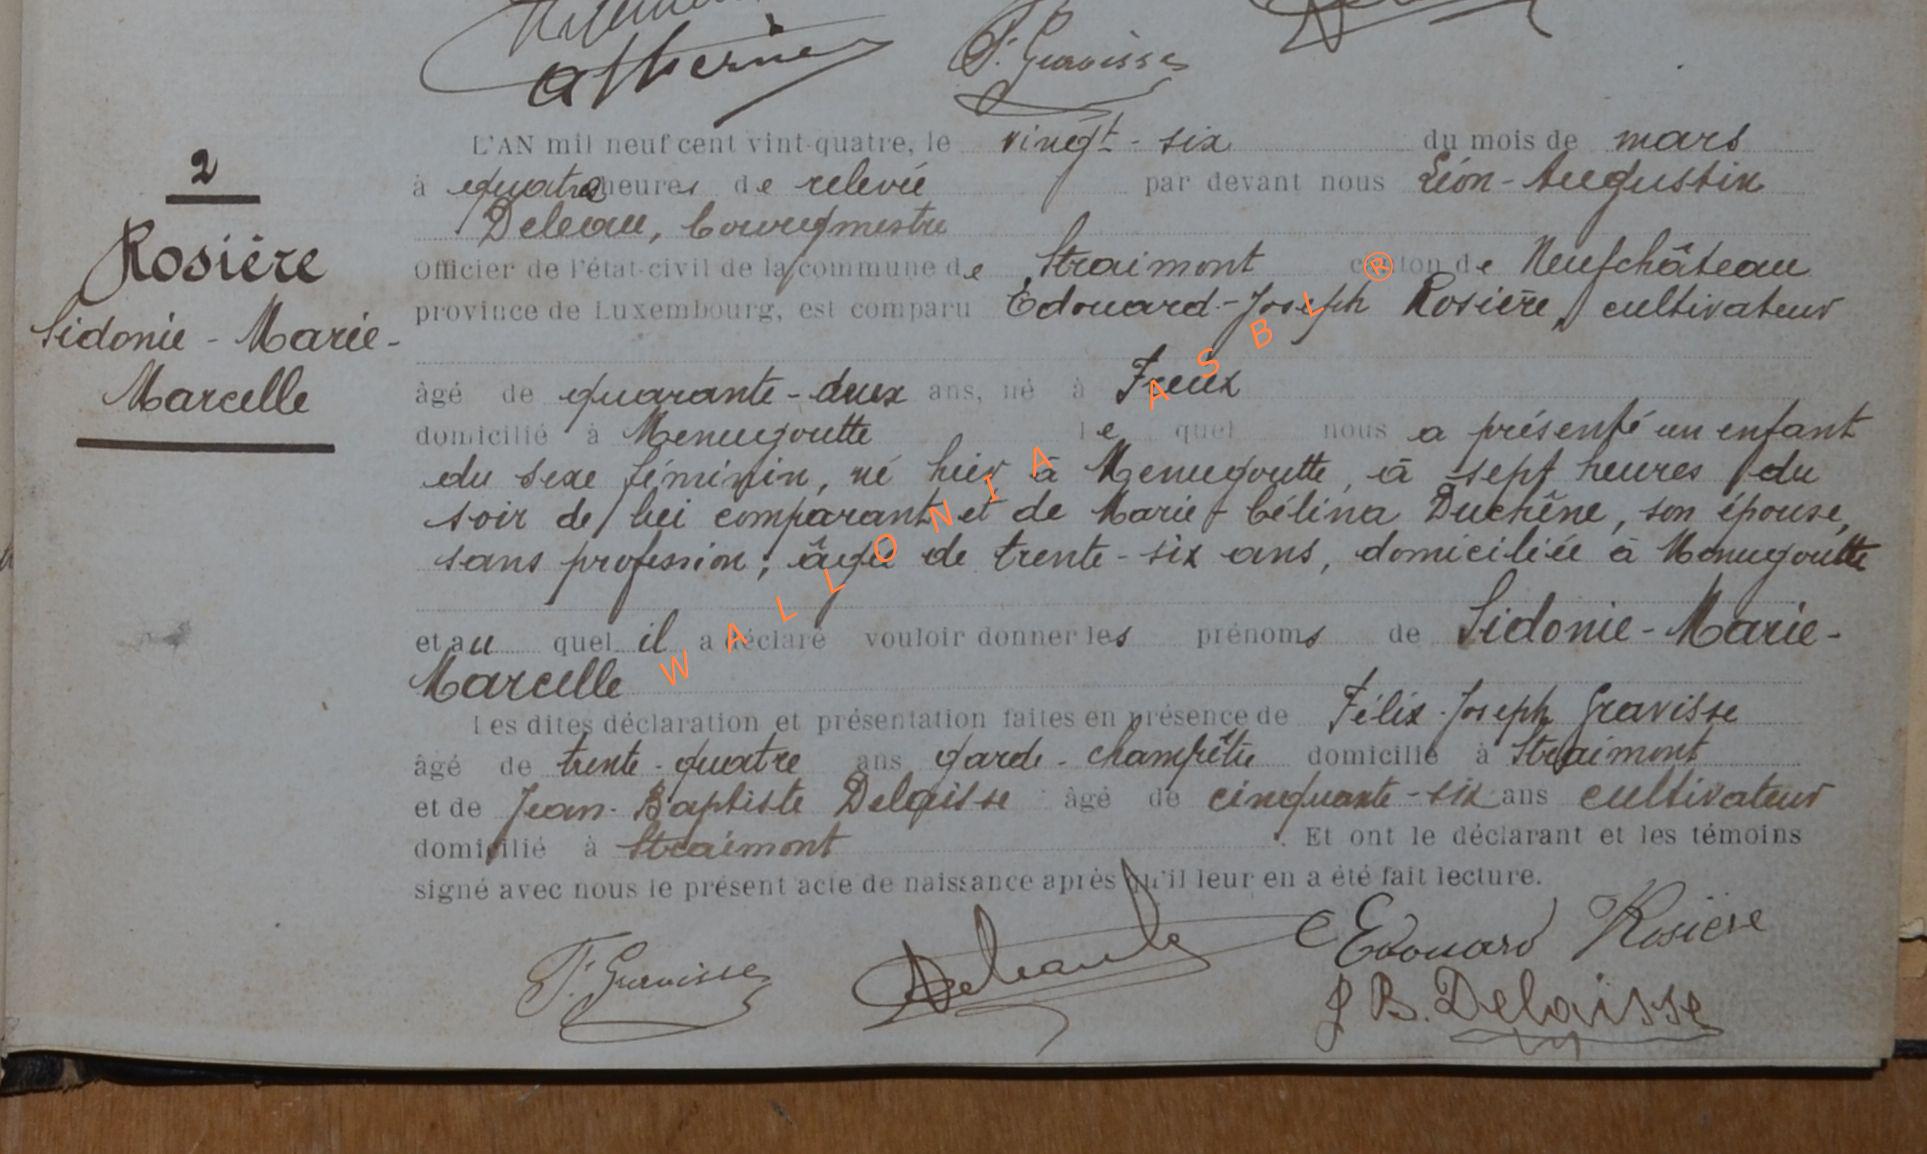 F. Gravisse
2
Rosière
Sidonie - Marie -
Marcelle
L'AN mil neuf cent vint-quatre, le vingt - six du mois de mars
à quatre heures de relevée par devant nous Léon - Augustin
Deleau, bourgmestre
Officier de l'état-civil de la commune de Straimont canton de Neufchâteau
province de Luxembourg, est comparu Edouard - Joseph Rosière, cultivateur
âgé de quarante - deux ans, né à Freux
domicilié à Menugoutte lequel nous a présenté un enfant
du sexe féminin, né hier à Menugoutte, à sept heures du
soir de lui comparant et de Marie - Célina Duchêne, son épouse,
sans profession, âgée de trente - six ans, domiciliée à Menugoutte
et au quel il a déclaré vouloir donner les prénoms de Sidonie - Marie -
Marcelle
Les dites déclaration et présentation faites en présence de Félix - Joseph Gravisse
âgé de trente - quatre ans garde - champêtre domicilié à Straimont
et de Jean - Baptiste Delaisse âgé de cinquante - six ans cultivateur
domicilié à Straimont. Et ont le déclarant et les témoins
signé avec nous le présent acte de naissance après qu'il leur en a été fait lecture.
F. Gravisse Deleau Edouard Rosière
J B. Delaisse
WALLONIA ASBL ®